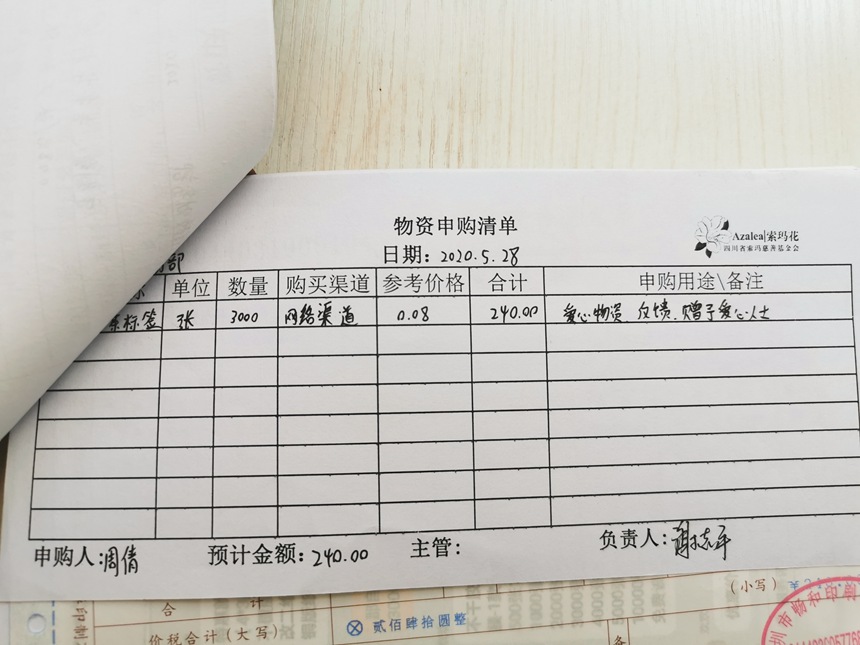 物资申购清单
Azalea|索玛花
四川省索玛慈善基金会
日期: 2020.5.28
部
单位 数量 购买渠道 参考价格 合计 申购用途\备注
标签 张 3000 网络渠道 0.08 240.00 爱心物资 反馈.赠予爱心人士
申购人:周倩 预计金额: 240.00 主管: 负责人:谢志平
合 计 (小写)
价税合计(大写) 贰佰肆拾圆整
市畅和印刷